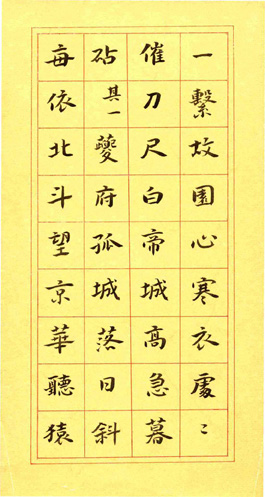 一繫故園心寒衣處〻
催刀尺白帝城高急暮
砧其一夔府孤城落日斜
每依北斗望京華聽猿